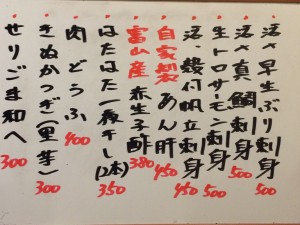 活〆早生ぶり刺身 500
活〆真鯛刺身 500
生トロサーモン刺身 500
活・殻付帆立刺身 450
自家製 あん肝 450
富山産 赤生子酢 380
はたはた一夜干し(2本) 350
肉どうふ 400
きぬかつぎ(里芋) 300
せりごま和へ 300